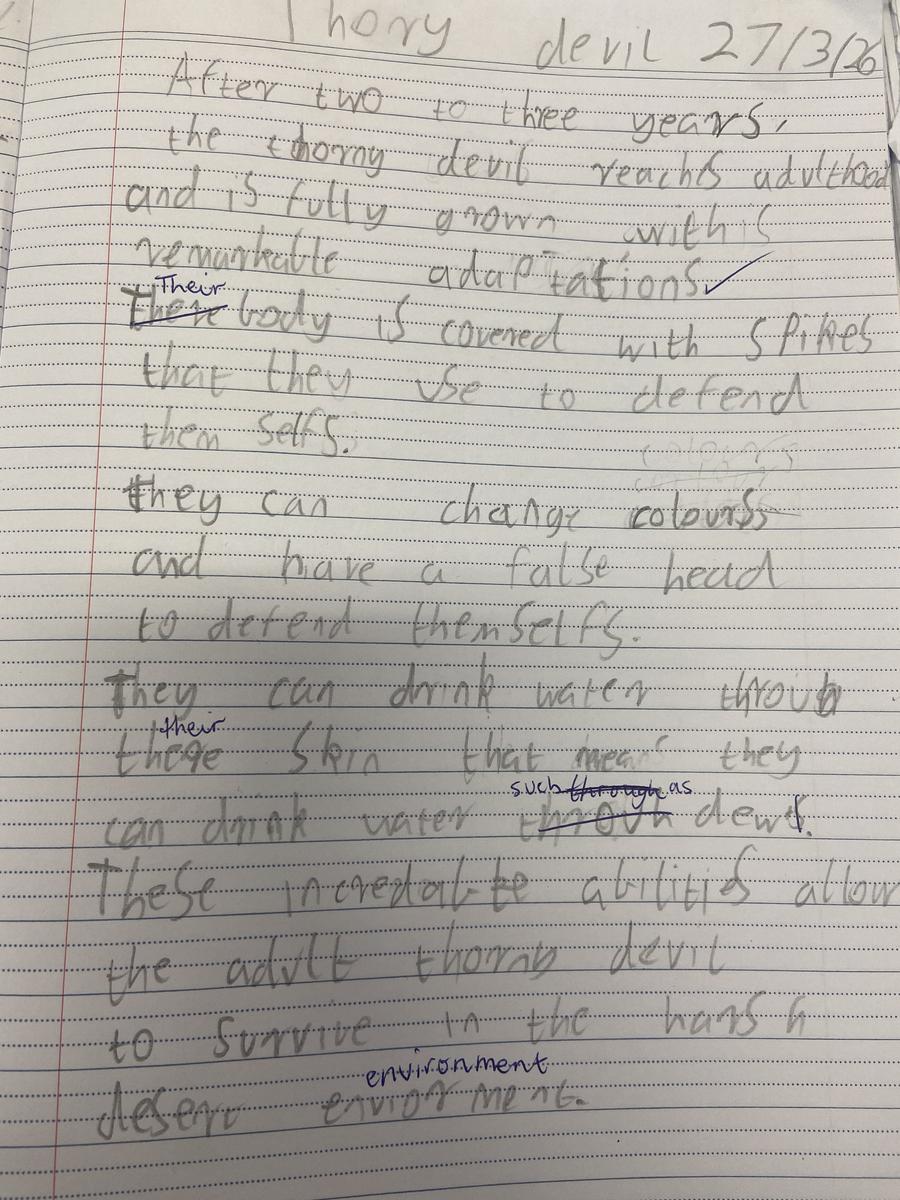 Thory devil 27/3/26
After two to three years,
the thorny devil reachs adulthood
and is fully grown with is
remarkable adaptations
Their
There body is covered with spikes
that they use to defend
them selfs.
colours
they can change colours
and have a false head
to defend themselfs.
They can drink water throuh
their
these skin that means they
such through as
can drink water throuh dew.
These incredable abilities allow
the adult thorny devil
to survive in the harsh
environment
desert enviorment.